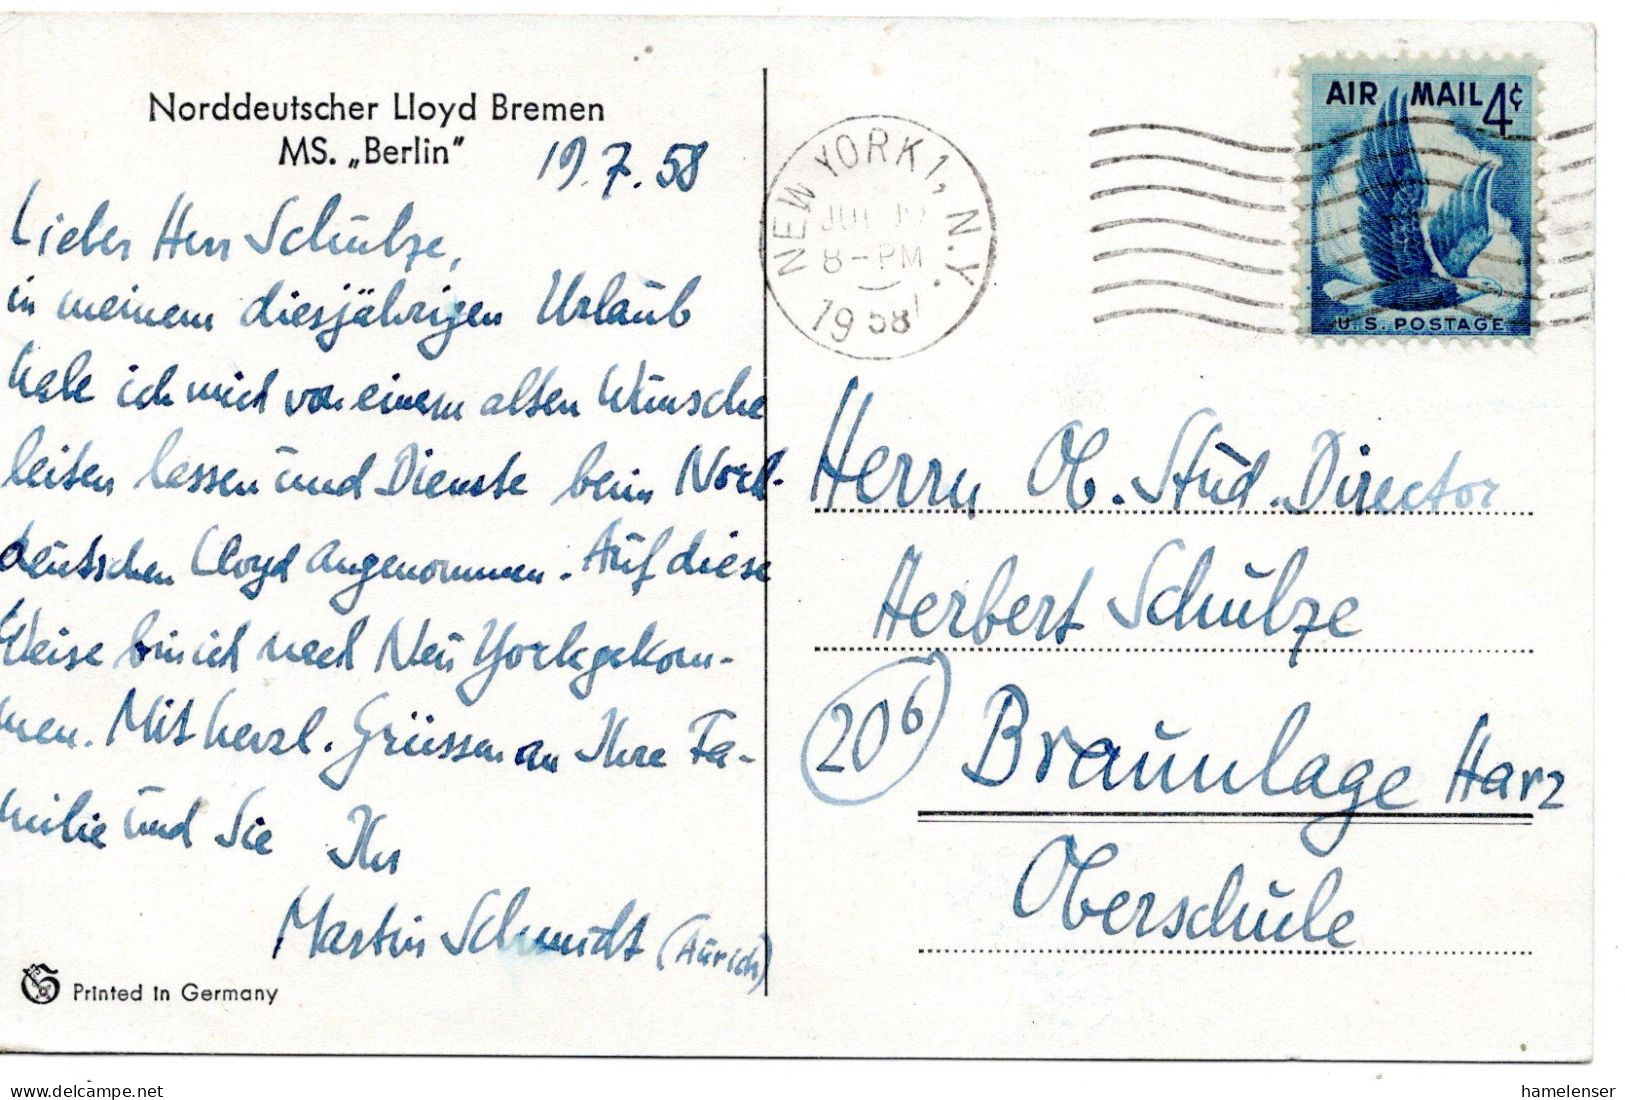 Norddeutscher Lloyd Bremen
MS. „Berlin"
19.7.58
Lieber Herr Schulze,
in meinem diesjährigen Urlaub
habe ich mich von einem alten Wunsche
leiten lassen und Dienste beim Nord-
deutschen Lloyd angenommen. Auf diese
Weise bin ich nach Neu York gekom-
men. Mit herzl. Grüssen an Ihre Fa-
milie und Sie Ihr
Martin Schmidt (Aurich)
Printed in Germany
NEW YORK 1, N.Y.
JUL 19
8-PM
1958
AIR MAIL 4¢
U.S. POSTAGE
Herrn Ob. Stud. Director
Herbert Schulze
(20b) Braunlage Harz
Oberschule
delcampe.net
hamelenser